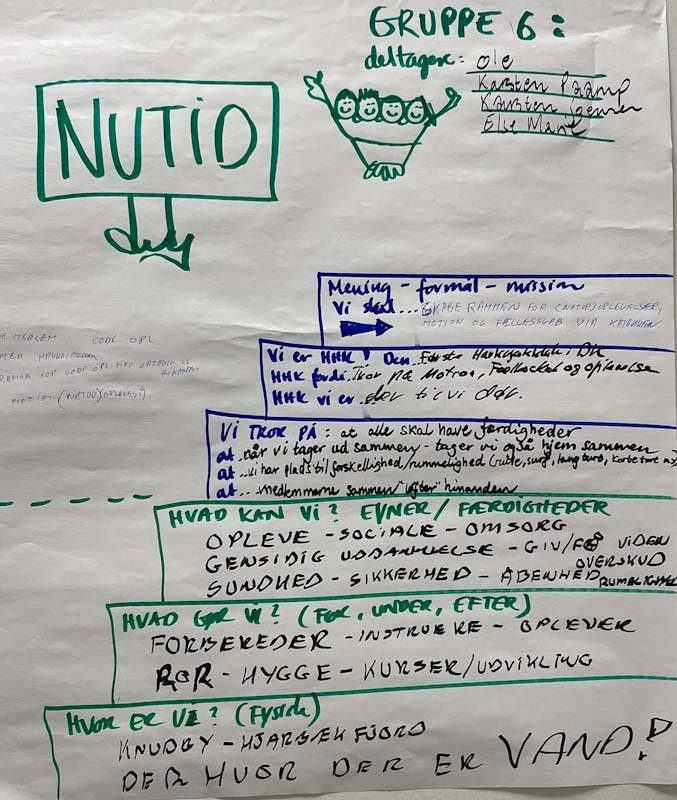 GRUPPE 6:
deltagere: ole
Karsten
Karsten
Else Marie
NUTID
Mening - formål - mission
Vi skal... SKABE RAMMEN FOR (NATUR)OPLEVELSER,
MOTION OG FÆLLESSKAB VIA KAJAKKEN
Vi er HHK! Den første Havkajakklub i DK
HHK fordi.. Tror på Motion, Fælleskab og oplevelse
HHK vi er.. der til vi dør.
Vi TROR PÅ: at alle skal have færdigheder
at når vi tager ud sammen - tager vi også hjem sammen
at ... vi har plads til forskellighed/rummelighed (rulle, surf, lang ture, korte ture
at ... medlemmerne sammen "løfter" hinanden
HVAD KAN Vi? EVNER/FÆRDIGHEDER
OPLEVE - SOCIALE - OMSORG
GENSIDIG UDDANNELSE - GIV/FÅ VIDEN
OVERSKUD
SUNDHED - SIKKERHED - ÅBENHED
HVAD GØR VI? (FØR, UNDER, EFTER)
FORBEREDER - INSTRUERE - OPLEVER
ROR - HYGGE - KURSER/UDVIKLING
HVOR ER VI? (Fysisk)
KNUDBY - HJARBÆK FJORD
DER HVOR DER ER VAND!